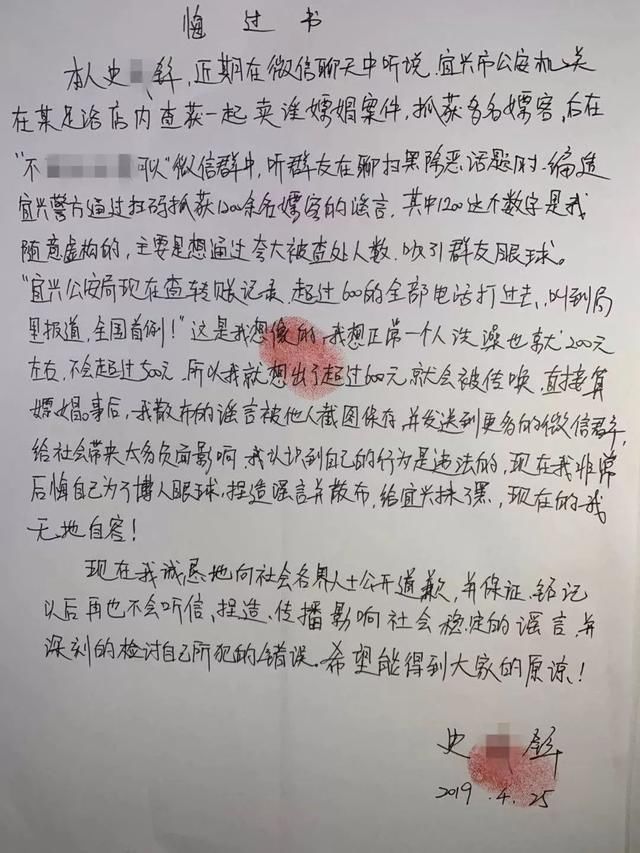 悔过书
本人史 锋,近期在微信聊天中听说,宜兴市公安机关
在某足浴店内查获一起卖淫嫖娼案件,抓获多名嫖客,后在
"不 可以"微信群中,听群友在聊扫黑除恶话题时,编造
宜兴警方通过扫码抓获1200余名嫖客的谣言,其中1200这个数字是我
随意虚构的,主要是想通过夸大被查处人数,吸引群友眼球。
"宜兴公安局现在查转账记录,超过600的全部电话打过去,叫到局
里报道,全国首例!"这是我想像的,我想正常一个人洗澡也就200元
左右,不会超过500元,所以我就想出了超过600元就会被传唤,直接算
嫖娼。事后,我散布的谣言被他人截图保存,并发送到更多的微信群,
给社会带来太多负面影响,我认识到自己的行为是违法的,现在我非常
后悔自己为了博人眼球,捏造谣言并散布,给宜兴抹了黑,现在的我
无地自容!
现在我诚恳地向社会各界人士公开道歉,并保证,铭记
以后再也不会听信、捏造、传播影响社会稳定的谣言,并
深刻的检讨自己所犯的错误。希望能得到大家的原谅!
史 锋
2019.4.25